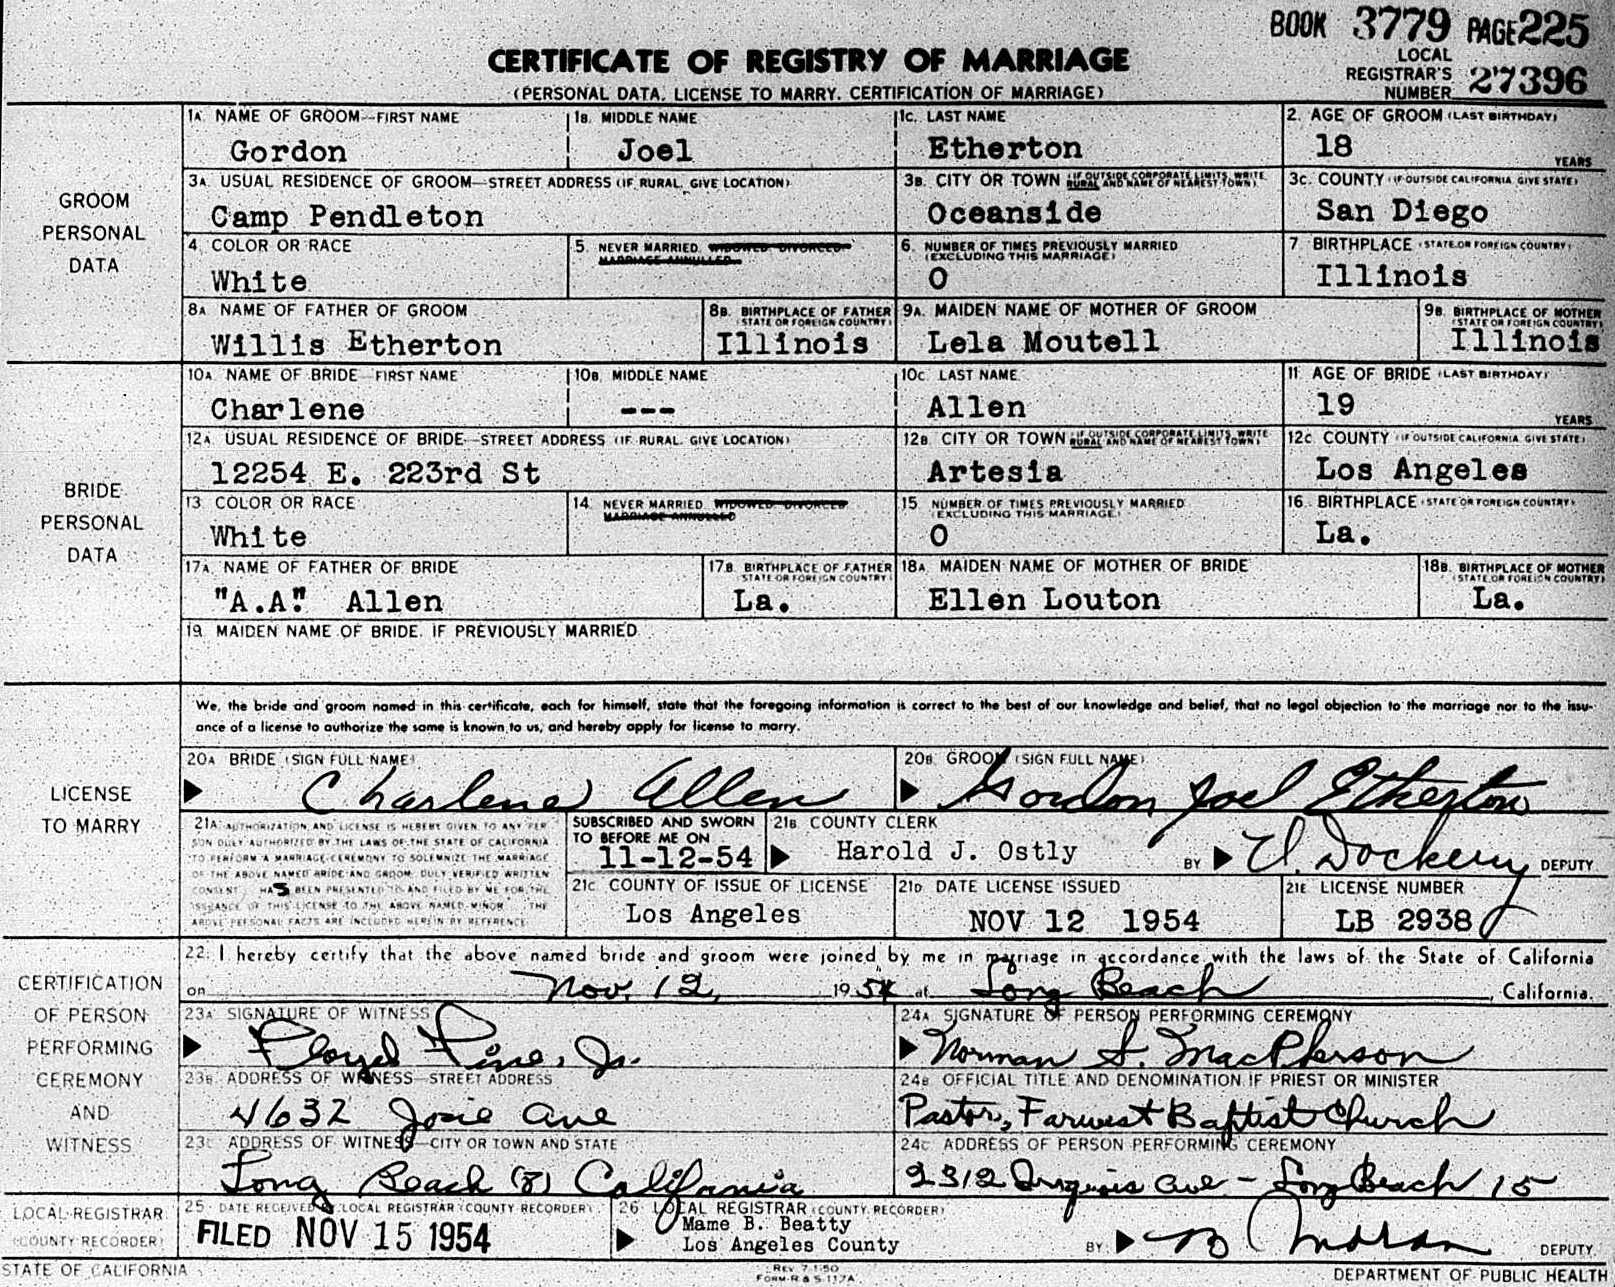 BOOK 3779 PAGE 225
CERTIFICATE OF REGISTRY OF MARRIAGE
LOCAL REGISTRAR'S NUMBER 27396
(PERSONAL DATA, LICENSE TO MARRY, CERTIFICATION OF MARRIAGE)
GROOM PERSONAL DATA
1A. NAME OF GROOM—FIRST NAME 1B. MIDDLE NAME 1C. LAST NAME 2. AGE OF GROOM (LAST BIRTHDAY)
Gordon Joel Etherton 18 YEARS
3A. USUAL RESIDENCE OF GROOM—STREET ADDRESS (IF RURAL, GIVE LOCATION) 3B. CITY OR TOWN (IF OUTSIDE CORPORATE LIMITS, WRITE RURAL AND NAME OF NEAREST TOWN) 3C. COUNTY (IF OUTSIDE CALIFORNIA, GIVE STATE)
Camp Pendleton Oceanside San Diego
4. COLOR OR RACE 5. NEVER MARRIED, WIDOWED, DIVORCED, MARRIAGE ANNULLED 6. NUMBER OF TIMES PREVIOUSLY MARRIED (EXCLUDING THIS MARRIAGE) 7. BIRTHPLACE (STATE OR FOREIGN COUNTRY)
White 0 Illinois
8A. NAME OF FATHER OF GROOM 8B. BIRTHPLACE OF FATHER (STATE OR FOREIGN COUNTRY) 9A. MAIDEN NAME OF MOTHER OF GROOM 9B. BIRTHPLACE OF MOTHER (STATE OR FOREIGN COUNTRY)
Willis Etherton Illinois Lela Moutell Illinois
BRIDE PERSONAL DATA
10A. NAME OF BRIDE—FIRST NAME 10B. MIDDLE NAME 10C. LAST NAME 11. AGE OF BRIDE (LAST BIRTHDAY)
Charlene --- Allen 19 YEARS
12A. USUAL RESIDENCE OF BRIDE—STREET ADDRESS (IF RURAL, GIVE LOCATION) 12B. CITY OR TOWN (IF OUTSIDE CORPORATE LIMITS, WRITE RURAL AND NAME OF NEAREST TOWN) 12C. COUNTY (IF OUTSIDE CALIFORNIA, GIVE STATE)
12254 E. 223rd St Artesia Los Angeles
13. COLOR OR RACE 14. NEVER MARRIED, WIDOWED, DIVORCED, MARRIAGE ANNULLED 15. NUMBER OF TIMES PREVIOUSLY MARRIED (EXCLUDING THIS MARRIAGE) 16. BIRTHPLACE (STATE OR FOREIGN COUNTRY)
White 0 La.
17A. NAME OF FATHER OF BRIDE 17B. BIRTHPLACE OF FATHER (STATE OR FOREIGN COUNTRY) 18A. MAIDEN NAME OF MOTHER OF BRIDE 18B. BIRTHPLACE OF MOTHER (STATE OR FOREIGN COUNTRY)
"A.A." Allen La. Ellen Louton La.
19. MAIDEN NAME OF BRIDE, IF PREVIOUSLY MARRIED
LICENSE TO MARRY
We, the bride and groom named in this certificate, each for himself, state that the foregoing information is correct to the best of our knowledge and belief, that no legal objection to the marriage nor to the issu-
ance of a license to authorize the same is known to us, and hereby apply for license to marry.
20A. BRIDE (SIGN FULL NAME) 20B. GROOM (SIGN FULL NAME)
Charlene Allen Gordon Joel Etherton
21A. AUTHORIZATION AND LICENSE IS HEREBY GIVEN TO ANY PER
SON DULY AUTHORIZED BY THE LAWS OF THE STATE OF CALIFORNIA
TO PERFORM A MARRIAGE CEREMONY TO SOLEMNIZE THE MARRIAGE
OF THE ABOVE NAMED BRIDE AND GROOM. DULY VERIFIED WRITTEN
CONSENT HAS BEEN PRESENTED TO AND FILED BY ME FOR THE
ISSUANCE OF THIS LICENSE TO THE ABOVE NAMED MINOR. THE
ABOVE PERSONAL FACTS ARE INCLUDED HEREIN BY REFERENCE
SUBSCRIBED AND SWORN TO BEFORE ME ON 11-12-54
21B. COUNTY CLERK
Harold J. Ostly BY V. Dockery DEPUTY
21C. COUNTY OF ISSUE OF LICENSE 21D. DATE LICENSE ISSUED 21E. LICENSE NUMBER
Los Angeles NOV 12 1954 LB 2938
CERTIFICATION OF PERSON PERFORMING CEREMONY AND WITNESS
22. I hereby certify that the above named bride and groom were joined by me in marriage in accordance with the laws of the State of California
on Nov. 12, 1954 at Long Beach, California.
23A. SIGNATURE OF WITNESS 24A. SIGNATURE OF PERSON PERFORMING CEREMONY
Floyd Pine, Jr. Norman S. MacPherson
23B. ADDRESS OF WITNESS—STREET ADDRESS 24B. OFFICIAL TITLE AND DENOMINATION IF PRIEST OR MINISTER
4632 Josie Ave Pastor, Farwest Baptist Church
23C. ADDRESS OF WITNESS—CITY OR TOWN AND STATE 24C. ADDRESS OF PERSON PERFORMING CEREMONY
Long Beach (8) California 2312 Ave - Long Beach 15
LOCAL REGISTRAR (COUNTY RECORDER)
25. DATE RECEIVED BY LOCAL REGISTRAR (COUNTY RECORDER) 26. LOCAL REGISTRAR (COUNTY RECORDER)
FILED NOV 15 1954 Mame B. Beatty
Los Angeles County BY DEPUTY
STATE OF CALIFORNIA REV. 7-1-50 FORM R & S-117A DEPARTMENT OF PUBLIC HEALTH